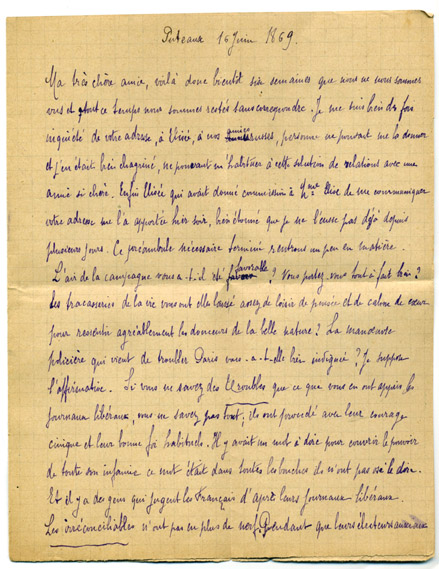 Puteaux 16 Juin 1869.
Ma très chère amie, voilà donc bientôt six semaines que nous ne nous sommes
vus et tout ce temps nous sommes restés sans correspondre. Je me suis bien des fois
inquiété de votre adresse, à Elisée, à nos amies russes, personne ne pouvant me la donner
et j'en étais bien chagriné, ne pouvant m'habituer à cette solution de relations avec une
amie si chère. Enfin Elisée qui avait donné commission à Mme Elise de me communiquer
votre adresse me l'a apportée hier soir, bien étonné que je ne l'eusse pas déjà depuis
plusieurs jours. Ce préambule nécessaire terminé rentrons un peu en matière.
L'air de la campagne vous a-t-il été favorable ? Vous portez-vous tout à fait bien ?
Les tracasseries de la vie vous ont elle laissé assez de loisir de pensée et de calme de cœur
pour ressentir agréablement les douceurs de la belle nature ? La manœuvre
policière qui vient de troubler Paris vous a-t-elle bien indignée ? Je suppose
l'affirmative. Si vous ne savez des troubles que ce que vous en ont appris les
journaux libéraux, vous ne savez pas tout, ils ont procédé avec leur courage
cinique et leur bonne foi habituels. Il y avait un mot à dire pour couvrir le pouvoir
de toute son infamie ce mot était dans toutes les bouches ils n'ont pas osé le dire.
Et il y a des gens qui jugent les Français d'après leurs journaux libéraux.
Les irréconciliables n'ont pas eu plus de nerf. Pendant que leurs électeurs